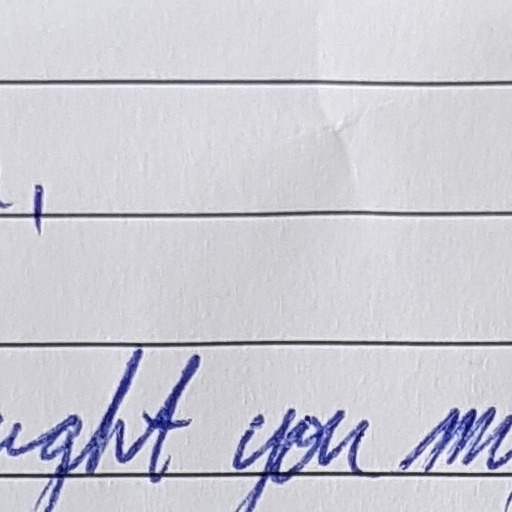 ,
ught you m